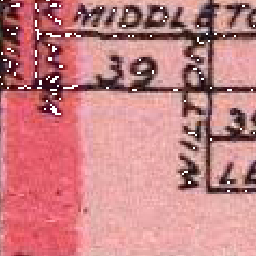 MIDDLETO
39
WILTON
39
LE